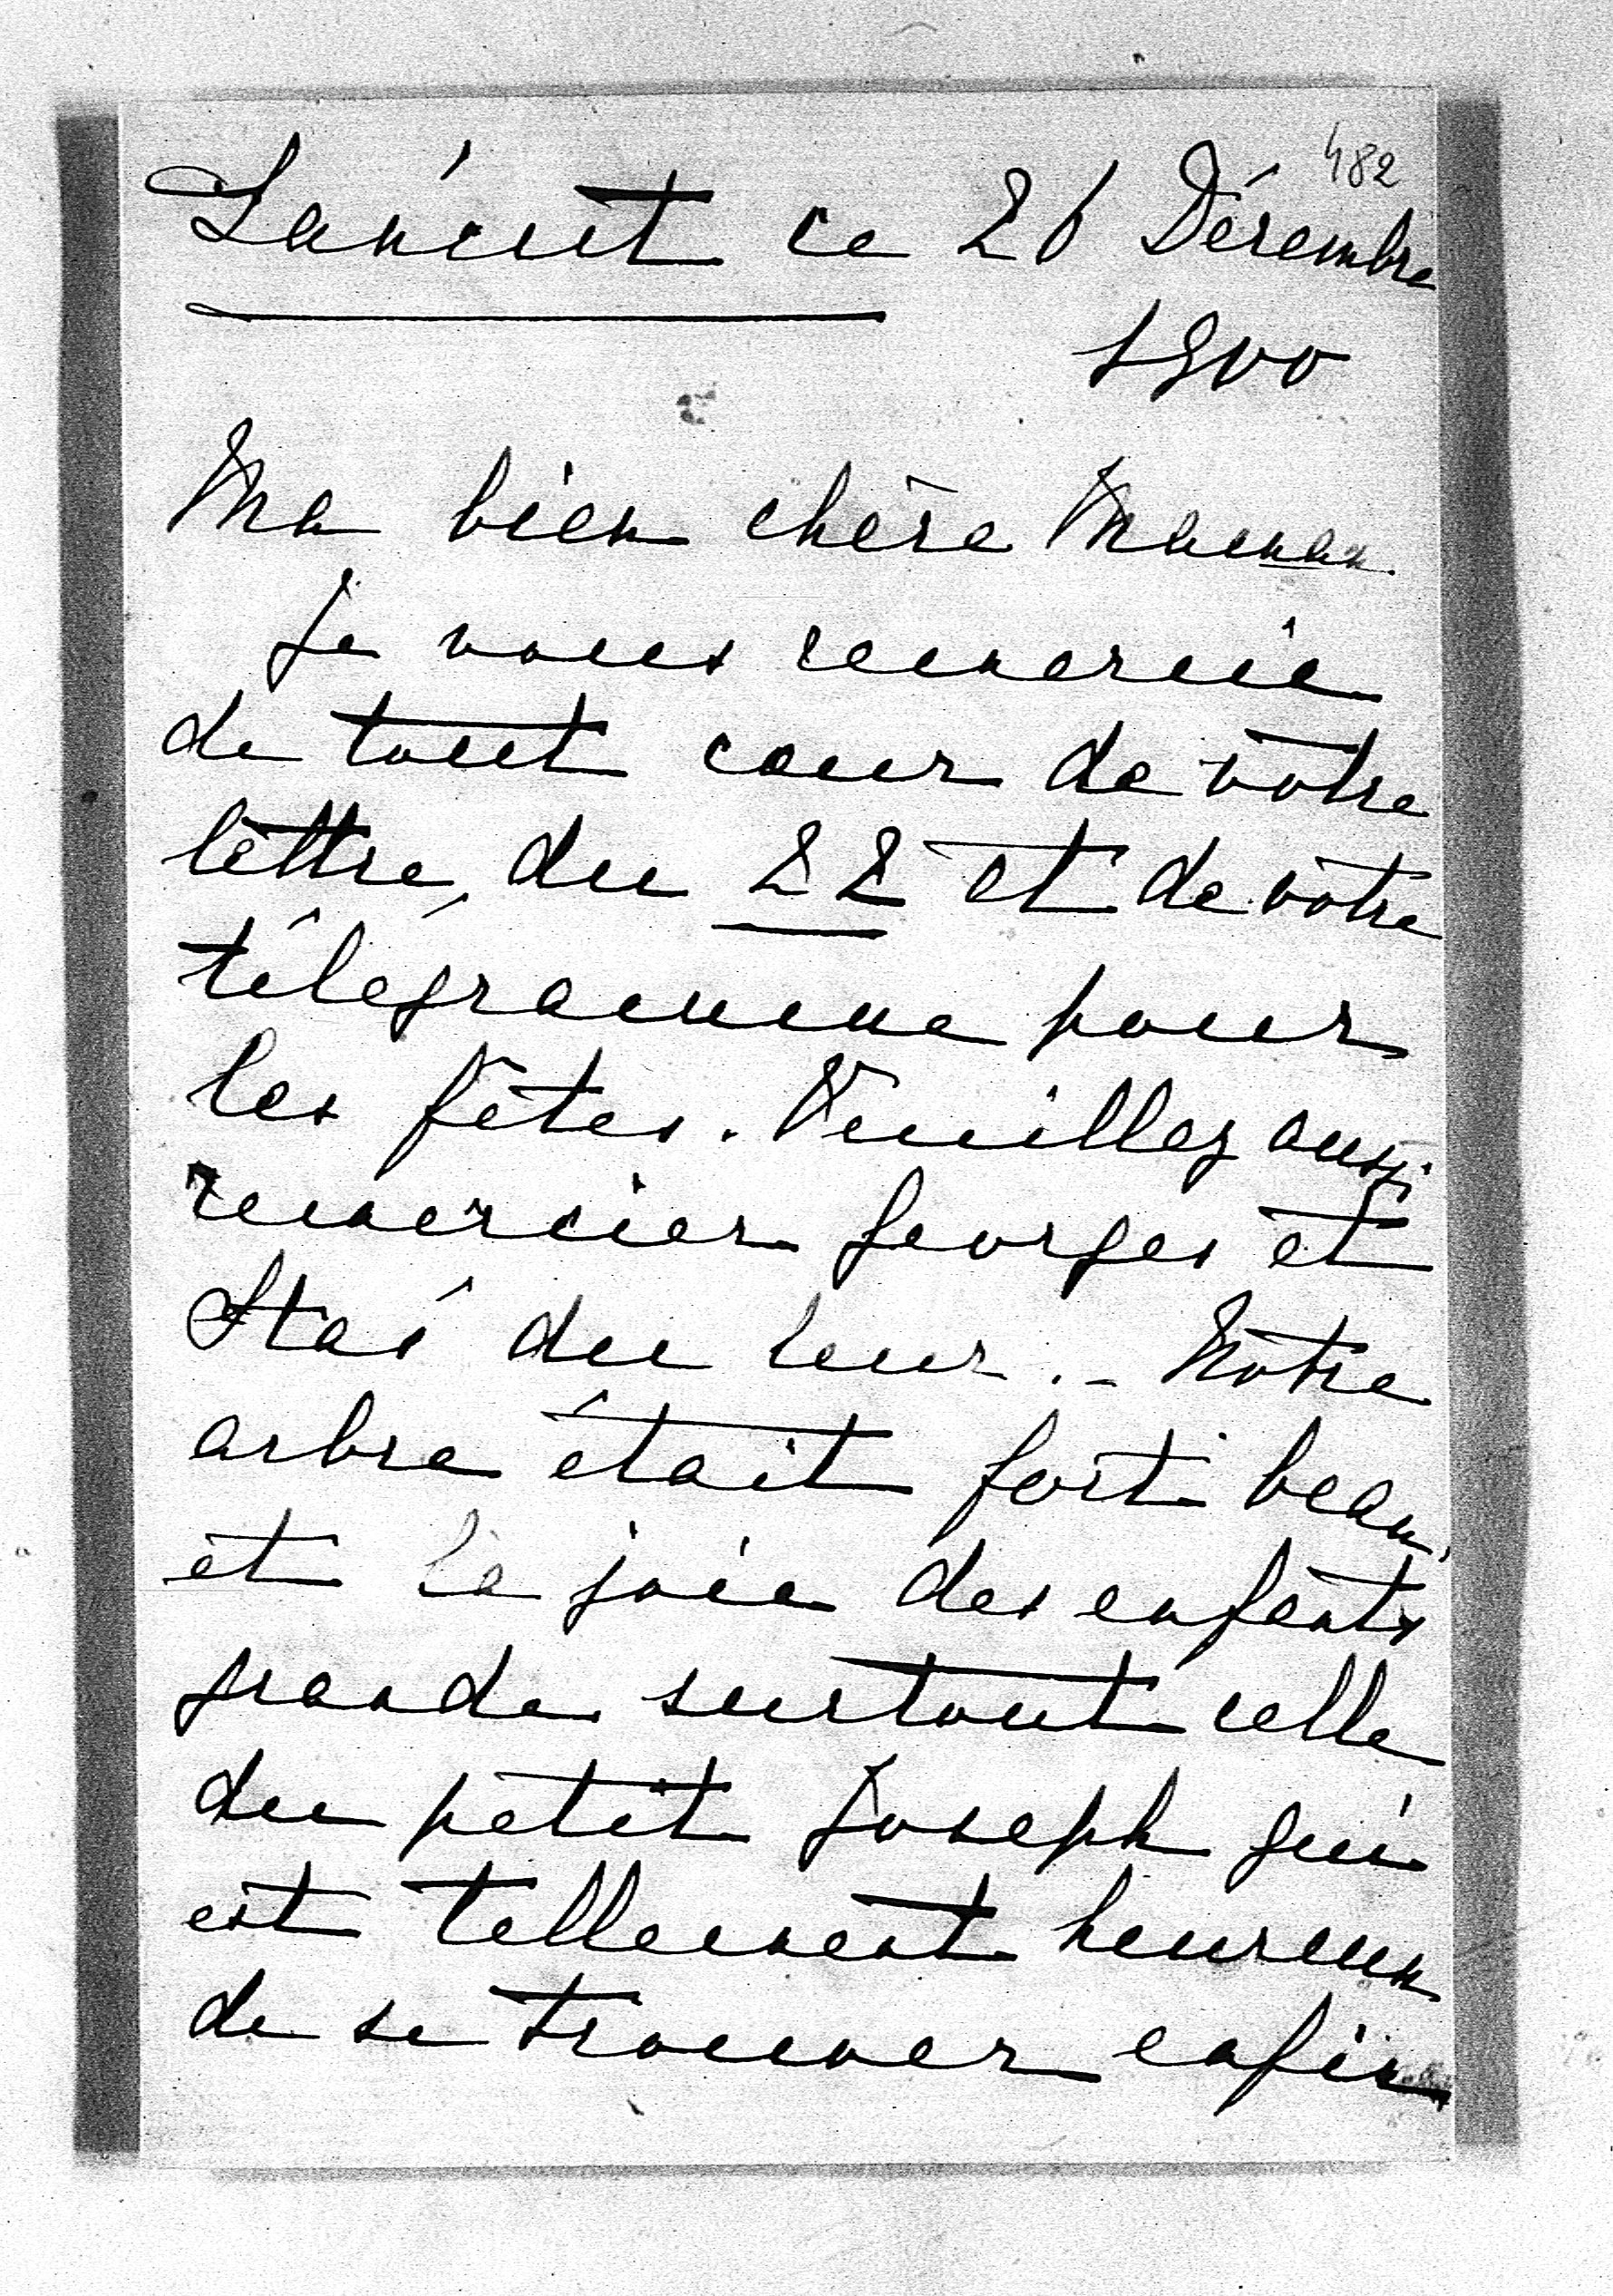 482
Łańcut ce 26 Décembre
1900
Ma bien chère Maman.
Je vous remercie
de tout cœur de vôtre
lettre, du 22 et de votre
télégramme pour
les fêtes. Veuillez aussi
remercier Georges et
Staś du leur. - Notre
arbre était fort beau,
et la joie des enfants
grande, surtout celle
du petit Joseph qui
est tellement heureux
de se trouver enfin